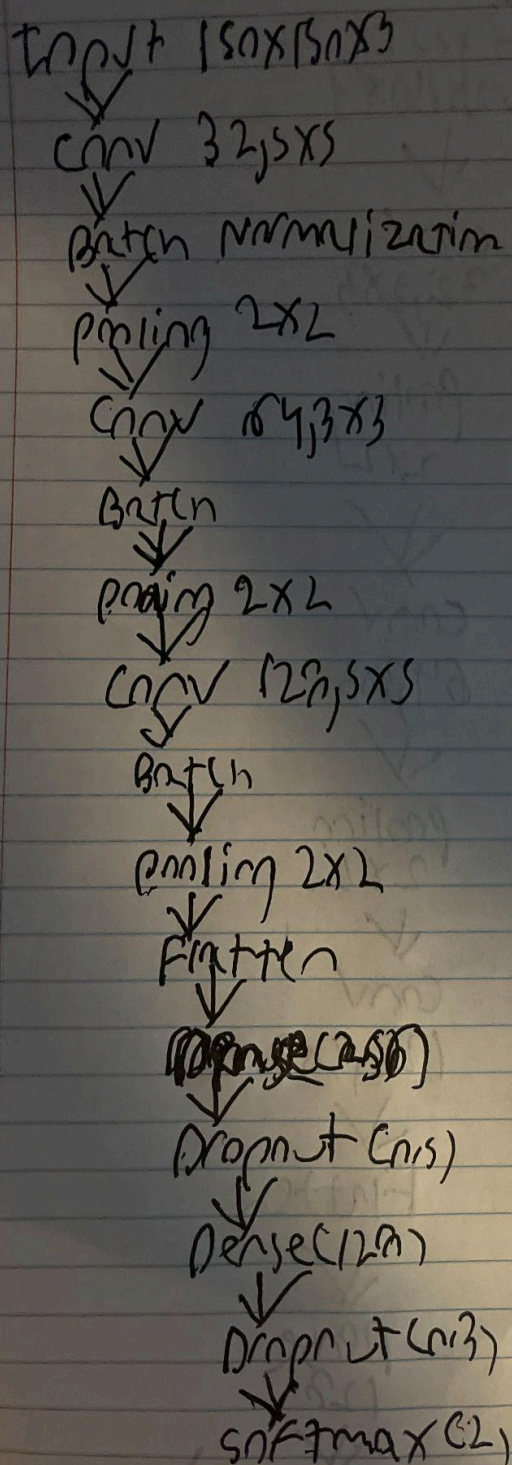 Input 150x150x3
Conv 32,5x5
Batch Normalization
pooling 2x2
Conv 64,3x3
Batch
pooling 2x2
Conv 128,5x5
Batch
pooling 2x2
Flatten
Dense(256)
Dropout (0.5)
Dense(128)
Dropout (0.3)
softmax (2)